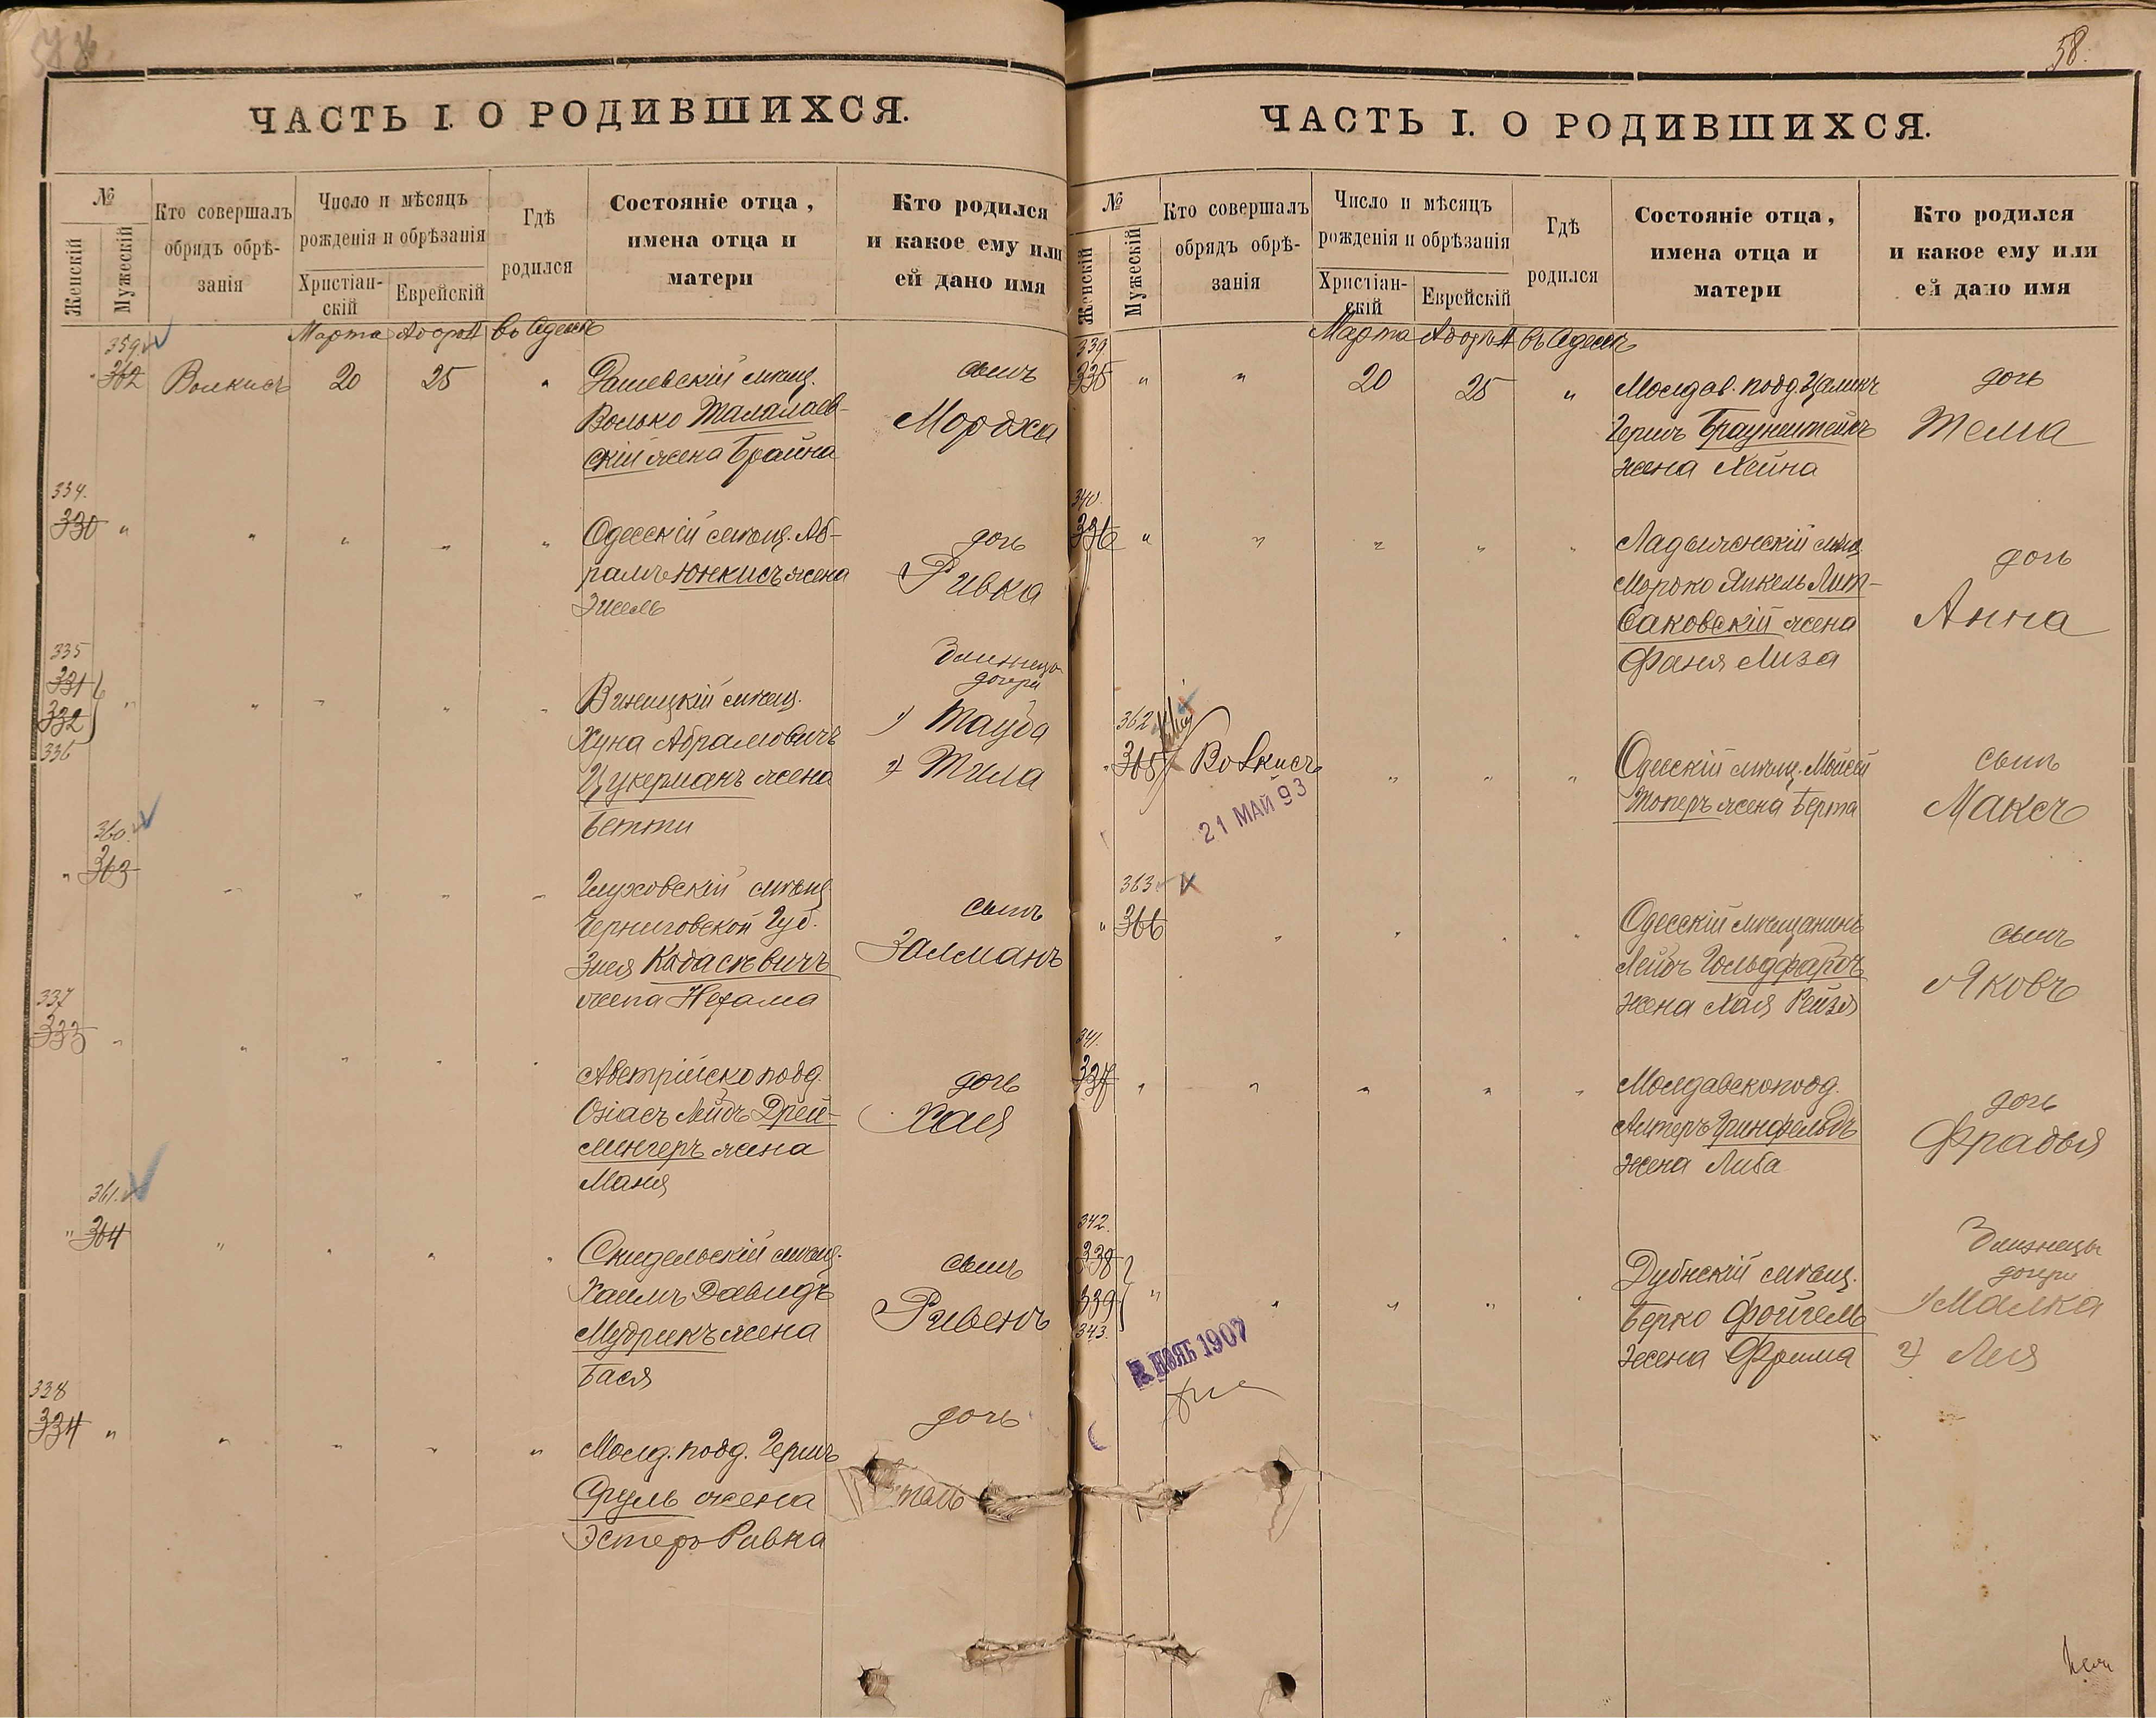 58.
ЧАСТЬ I. О РОДИВШИХСЯ.
№
Женскій
Мужескій
Кто совершалъ
обрядъ обрѣ-
занія
Число и мѣсяцъ
рожденія и обрѣзанія
Христіан-
скій
Еврейскій
Гдѣ
родился
Состояніе отца,
имена отца и
матери
Кто родился
и какое ему или
ей дано имя
Марта
въ Одессѣ
359
362 Волкисъ 20 25 "
Дашевскій мѣщ.
Волько Талалаев-
скій жена Брайна
сынъ
Мордха
334.
330 " " " " "
Одесскій мѣщ. Аб-
рамъ Юнкисъ жена
дочь
Ривка
335
331
332
336
Винницкій мѣщ.
Хуна Абрамовичъ
Цукерманъ жена
Бетти
Близнецы
дочери
1) Тауба
2) Тила
360.
363
Глуховскій мѣщ.
Черниговской Губ.
жена Нехама
сынъ
Залманъ
337
333
Австрійско подд.
Озіасъ Лейбъ Дрей-
лингеръ жена
Маня
дочь
Хая
361.
364
Скидельскій мѣщ.
Хаимъ Давидъ
Мудрикъ жена
Бася
сынъ
Рувенъ
338
334 " " " " "
Молд. подд. Гершъ
Сруль жена
Эстеръ Ривка
дочь
58.
ЧАСТЬ I. О РОДИВШИХСЯ.
№
Женскій
Мужескій
Кто совершалъ
обрядъ обрѣ-
занія
Число и мѣсяцъ
рожденія и обрѣзанія
Христіан-
скій
Еврейскій
Гдѣ
родился
Состояніе отца,
имена отца и
матери
Кто родился
и какое ему или
ей дано имя
Марта
въ Одессѣ
339
335 " " 20 25 "
Молдав. подд. Цаликъ
Гершъ Браунштейнъ
жена Хейна
дочь
Тема
340.
336 " " " " "
Ладыженскій мѣщ.
Морко Янкель Лит-
саковскій жена
Фаня Лиза
дочь
Анна
362
365 Волкисъ
21 МАЙ 93
Одесскій мѣщ. Мойсей
Топеръ жена Берта
сынъ
Максъ
363
366
Одесскій мѣщанинъ
Лейбъ Гольдфарбъ
жена Хая Рейзя
сынъ
Яковъ
341.
337
Молдавскоподд.
Алтеръ Гринфельдъ
жена Либа
дочь
Фрадья
342.
338
339
343.
НОЯБ 1907
Дубнскій мѣщ.
Берко Фойгель
жена Фрима
Близнецы
дочери
1) Малка
2) Лея